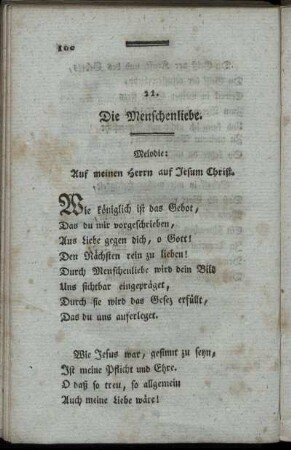 102
21.
Die Menschenliebe.
Melodie:
Auf meinen Herrn auf Jesum Christ.
Wie königlich ist das Gebot,
Das du mir vorgeschrieben,
Aus Liebe gegen dich, o Gott!
Den Nächsten rein zu lieben!
Durch Menschenliebe wird dein Bild
Uns sichtbar eingepräget,
Durch sie wird das Gesez erfüllt,
Das du uns auferleget.
Wie Jesus war, gesinnt zu seyn,
Ist meine Pflicht und Ehre.
O daß so treu, so allgemein
Auch meine Liebe wäre!